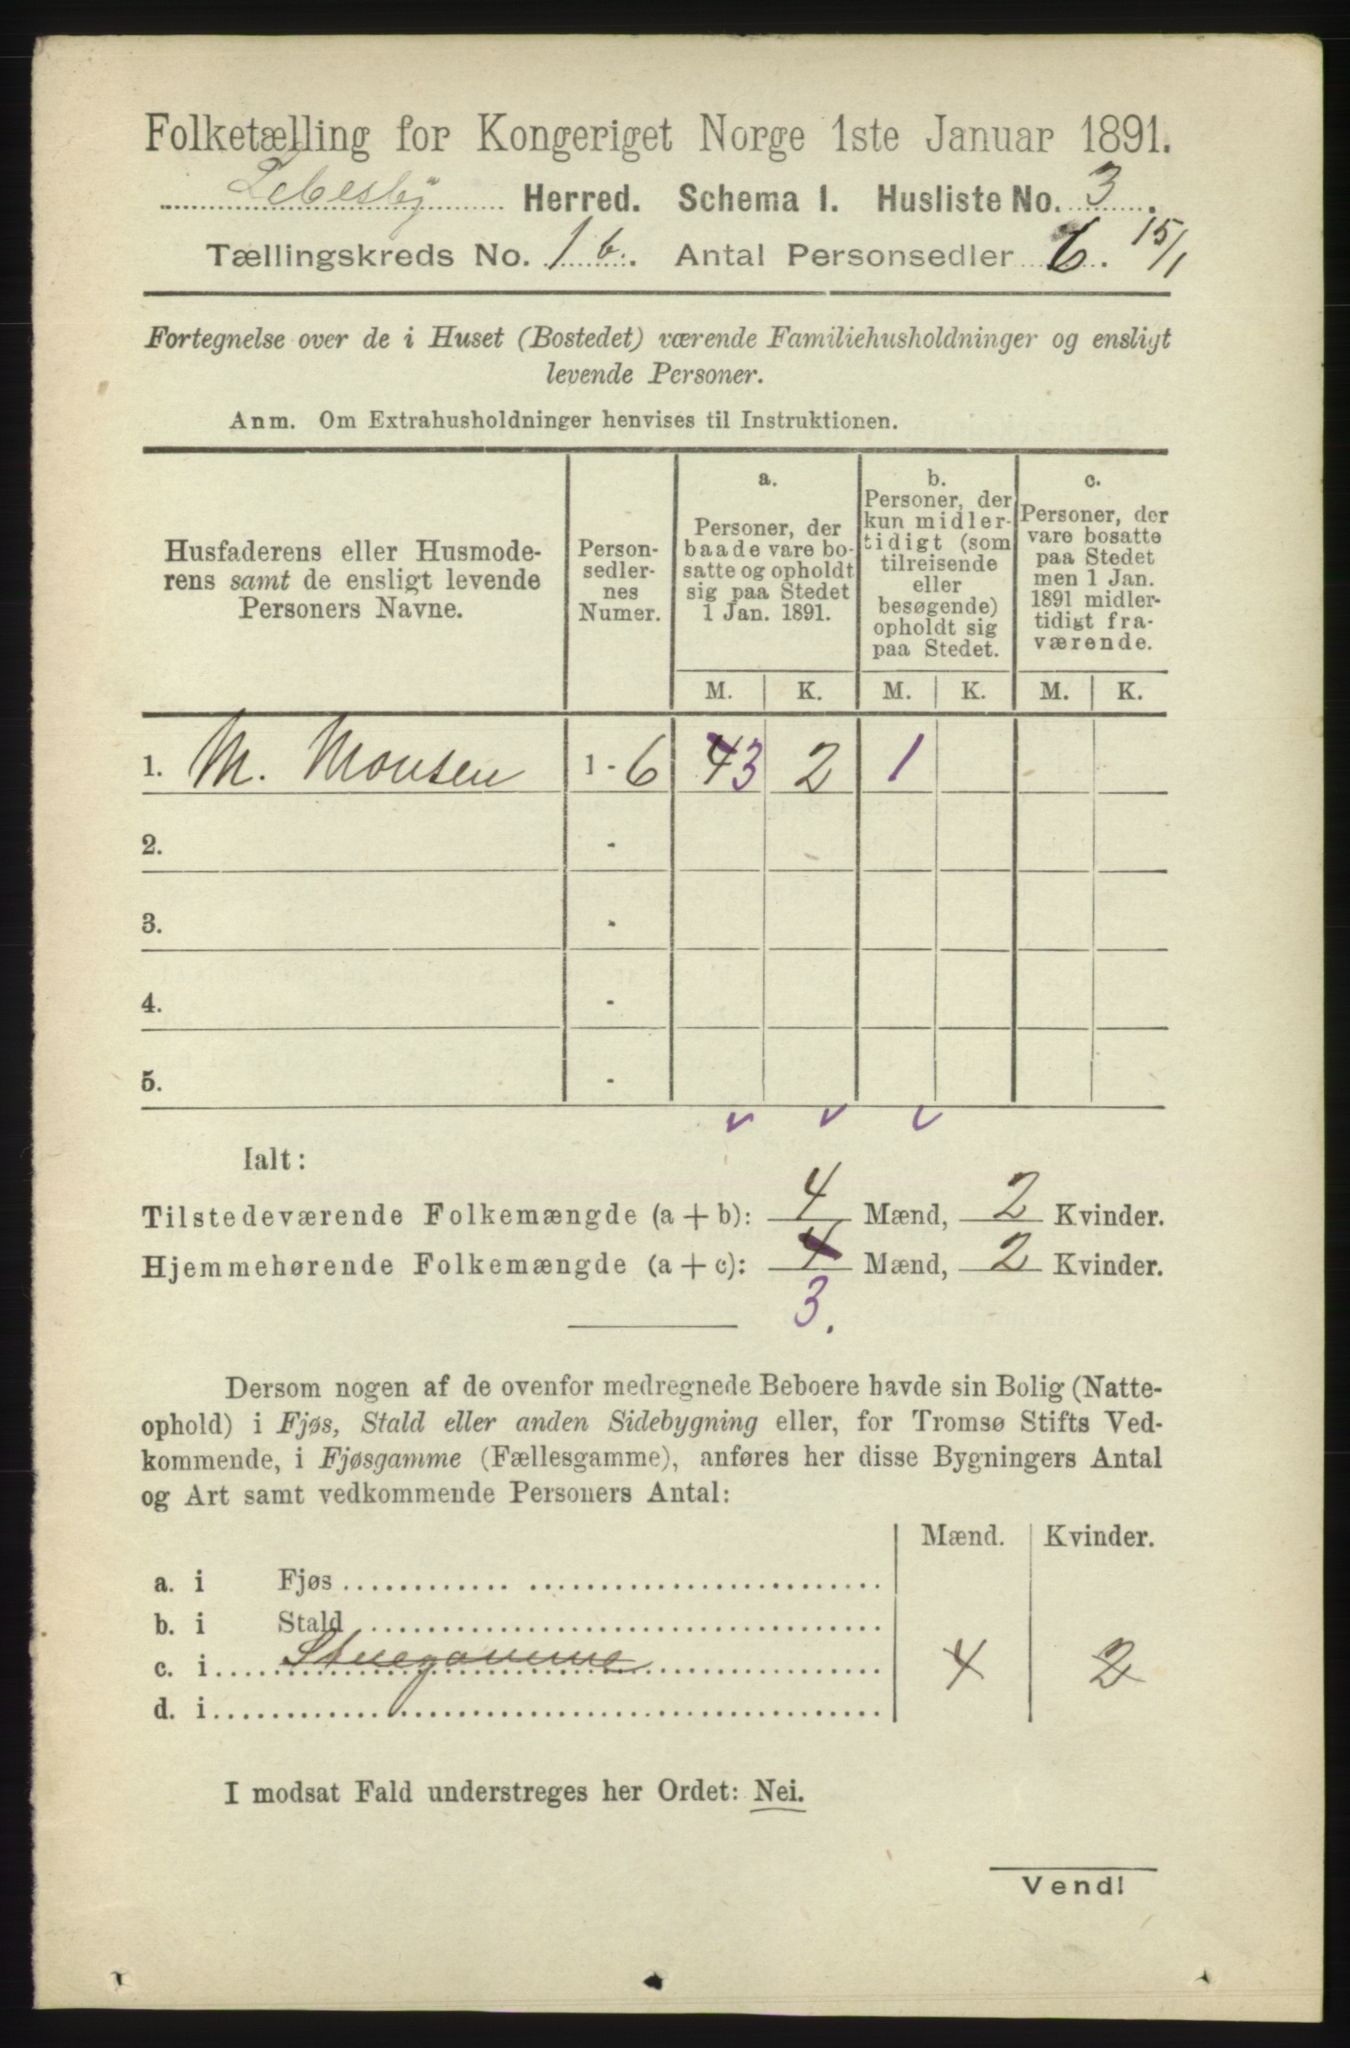 Folketælling for Kongeriget Norge 1ste Januar 1891.
Lebesby Herred. Schema I. Husliste No. 3.
Tællingskreds No. 1 b. Antal Personsedler 6. 15/1
Fortegnelse over de i Huset (Bostedet) værende Familiehusholdninger og ensligt
levende Personer.
Anm. Om Extrahusholdninger henvises til Instruktionen.
Husfaderens eller Husmode-
rens samt de ensligt levende
Personers Navne.
Person-
sedler-
nes
Numer.
a.
Personer, der
baade vare bo-
satte og opholdt
sig paa Stedet
1 Jan. 1891.
b.
Personer, der
kun midler-
tidigt (som
tilreisende
eller
besøgende)
opholdt sig
paa Stedet.
c.
Personer, der
vare bosatte
paa Stedet
men 1 Jan.
1891 midler-
tidigt fra-
værende.
M. K. M. K. M. K.
1. M. Monsen 1 - 6 43 2 1
2. -
3. -
4. -
5. -
Ialt:
Tilstedeværende Folkemængde (a + b): 4 Mænd, 2 Kvinder.
Hjemmehørende Folkemængde (a + c): 4 Mænd, 2 Kvinder.
3.
Dersom nogen af de ovenfor medregnede Beboere havde sin Bolig (Natte-
ophold) i Fjøs, Stald eller anden Sidebygning eller, for Tromsø Stifts Ved-
kommende, i Fjøsgamme (Fællesgamme), anføres her disse Bygningers Antal
og Art samt vedkommende Personers Antal:
Mænd. Kvinder.
a. i Fjøs
b. i Stald
c. i Stuegamme 4 2
d. i
I modsat Fald understreges her Ordet: Nei.
Vend!